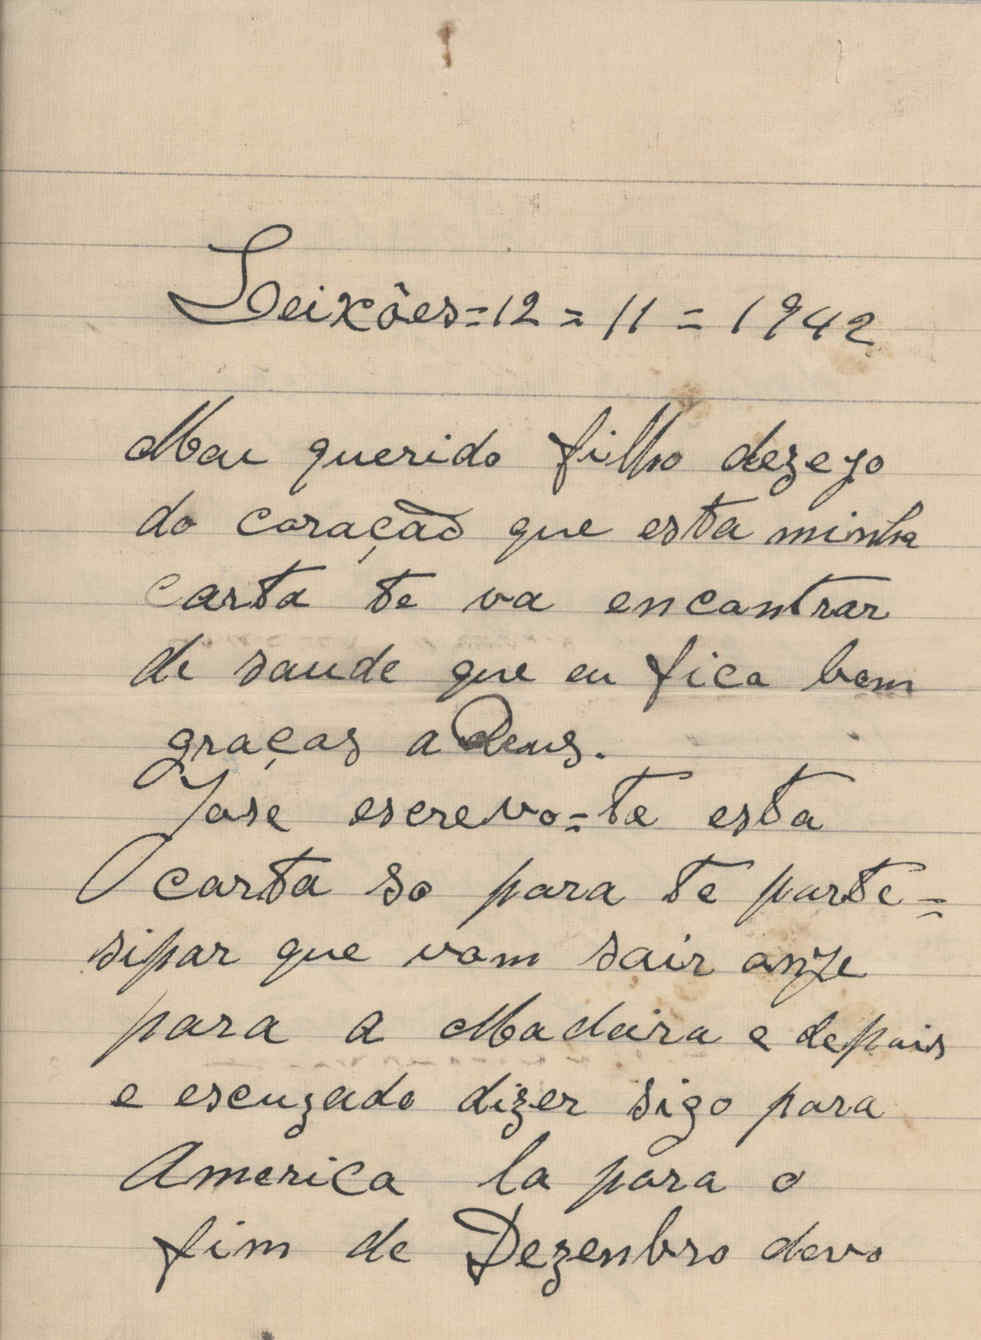 Leixões=12=11=1942
Meu querido filho dezeyo
do coração que esta minha
carta te va encontrar
de saude que eu fico bem
graças a Deus.
Jose escrevo=te esta
carta so para te parte=
sipar que vam sair onze
para a Madeira e depois
e escuzado dizer sigo para
America la para o
fim de Dezenbro devo